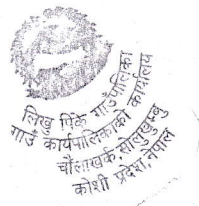 लिखु पिके गाउँपालिका
गाउँ कार्यपालिकाको कार्यालय
चौंलाखर्क, सोलुखुम्बु
कोशी प्रदेश, नेपाल